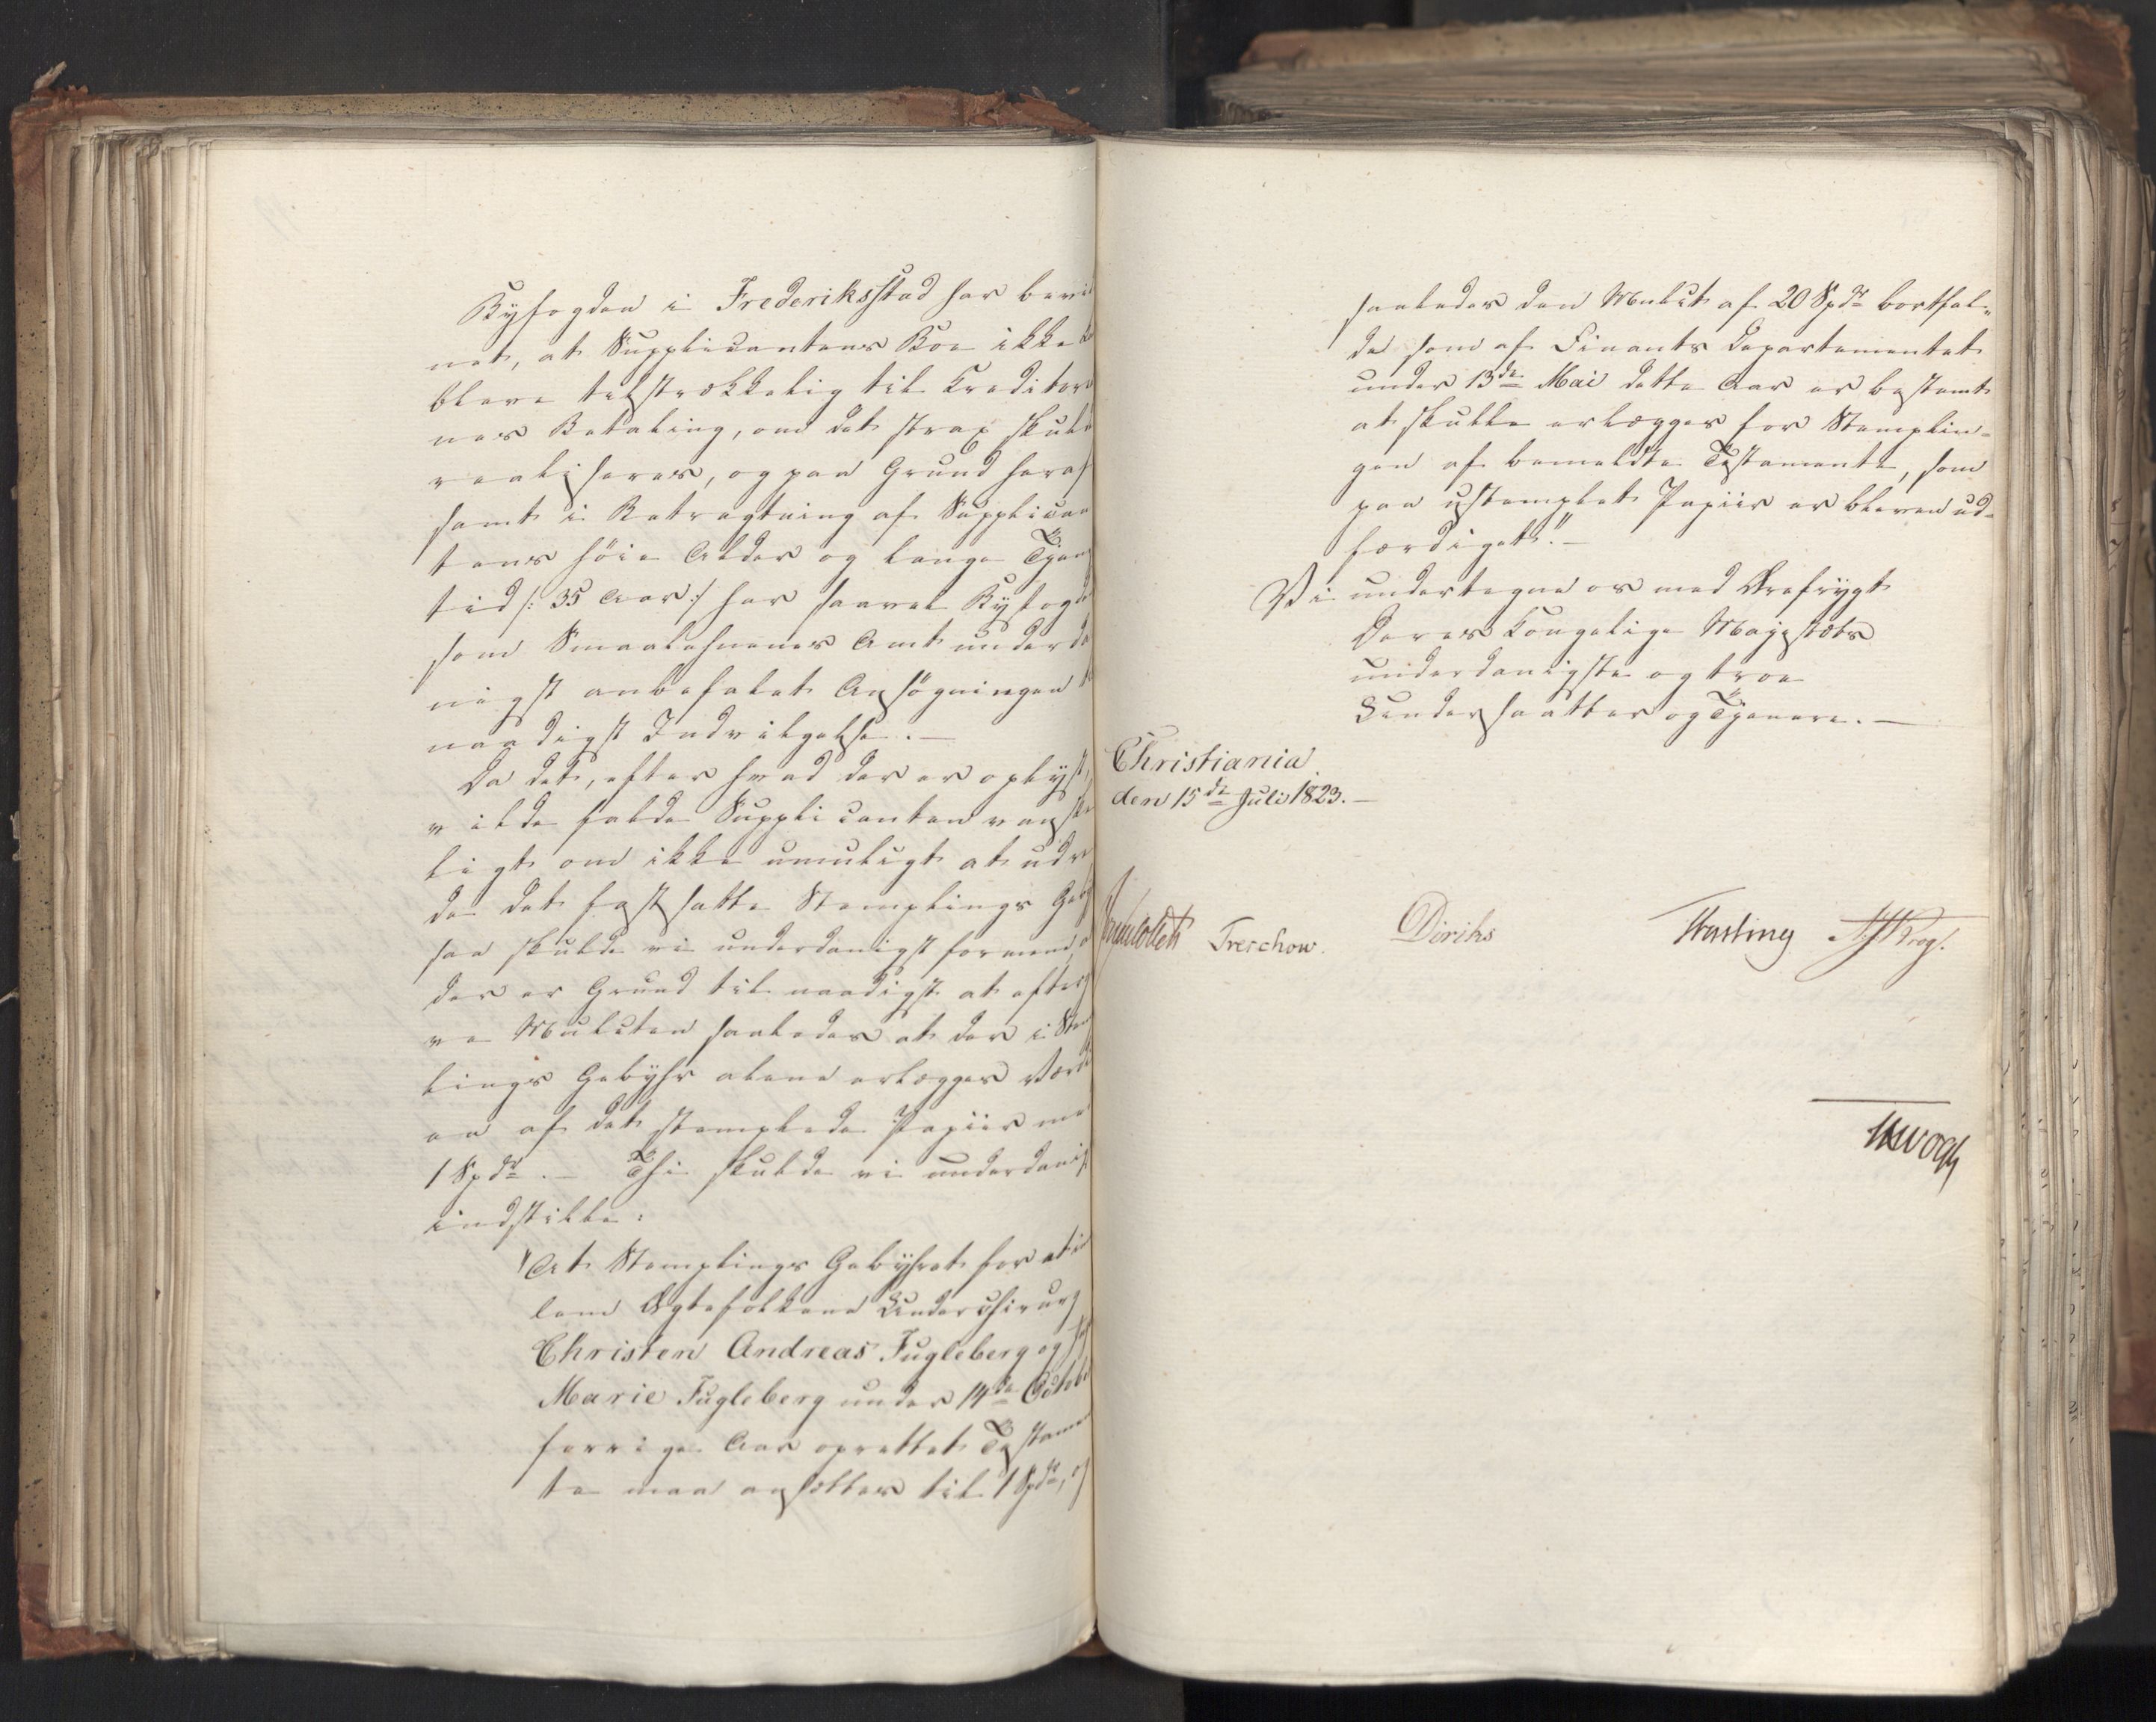 Byfogden i Frederiksstad har bevid
net, at Supplicantens Boe ikke
blev tilstrækkelig til Creditorer
nes Betaling, om det strax skuld
realiseres, og paa Grund heraf
samt i Betragtning af Supplican
tens høie Alder og lange Tjene
tid /: 35 Aar :/ har saavel Byfogd
som Smaalehnenes Amt underda
nigst anbefalet Ansøgningen
naadigst Indvilgelse. —
Da det, efter hvad der er oplyst,
vilde falde Supplicanten vanske
ligt om ikke umuligt at udr
de det fastsatte Stemplings Geb
saa skulde vi underdanigst formene
der er Grund til naadigst at efterg
ve Mulcten saaledes at der i Stem
lings Gebyhr alene erlægges Værdi
en af det stemplede Papiir
1 Spdr. — Thi skulde vi underdanig
indstille:
"At Stemplings Gebyhret for et
lem Ægtefolkene Underchirurg
Christen Andreas Fugleberg og
Marie Fugleberg under 14de Octobe
forrige Aar oprettet Testamen
te maa ansættes til 1 Spdr, og
saaledes den Mulct af 20 Spdr bortfal-
de som af Finants Departementet
under 13de Mai dette Aar er bestemt
at skulle erlægges for Stemplin-
gen af bemeldte Testamente, som
paa ustemplet Papiir er bleven ud-
færdiget." —
Vi undertegne os med Ærefrygt
Deres Kongelige Majestæts
underdanigste og troe
Undersaatter og Tjenere. —
Christiania
den 15de Juli 1823. —
Treschow. Diriks Fasting Krog.